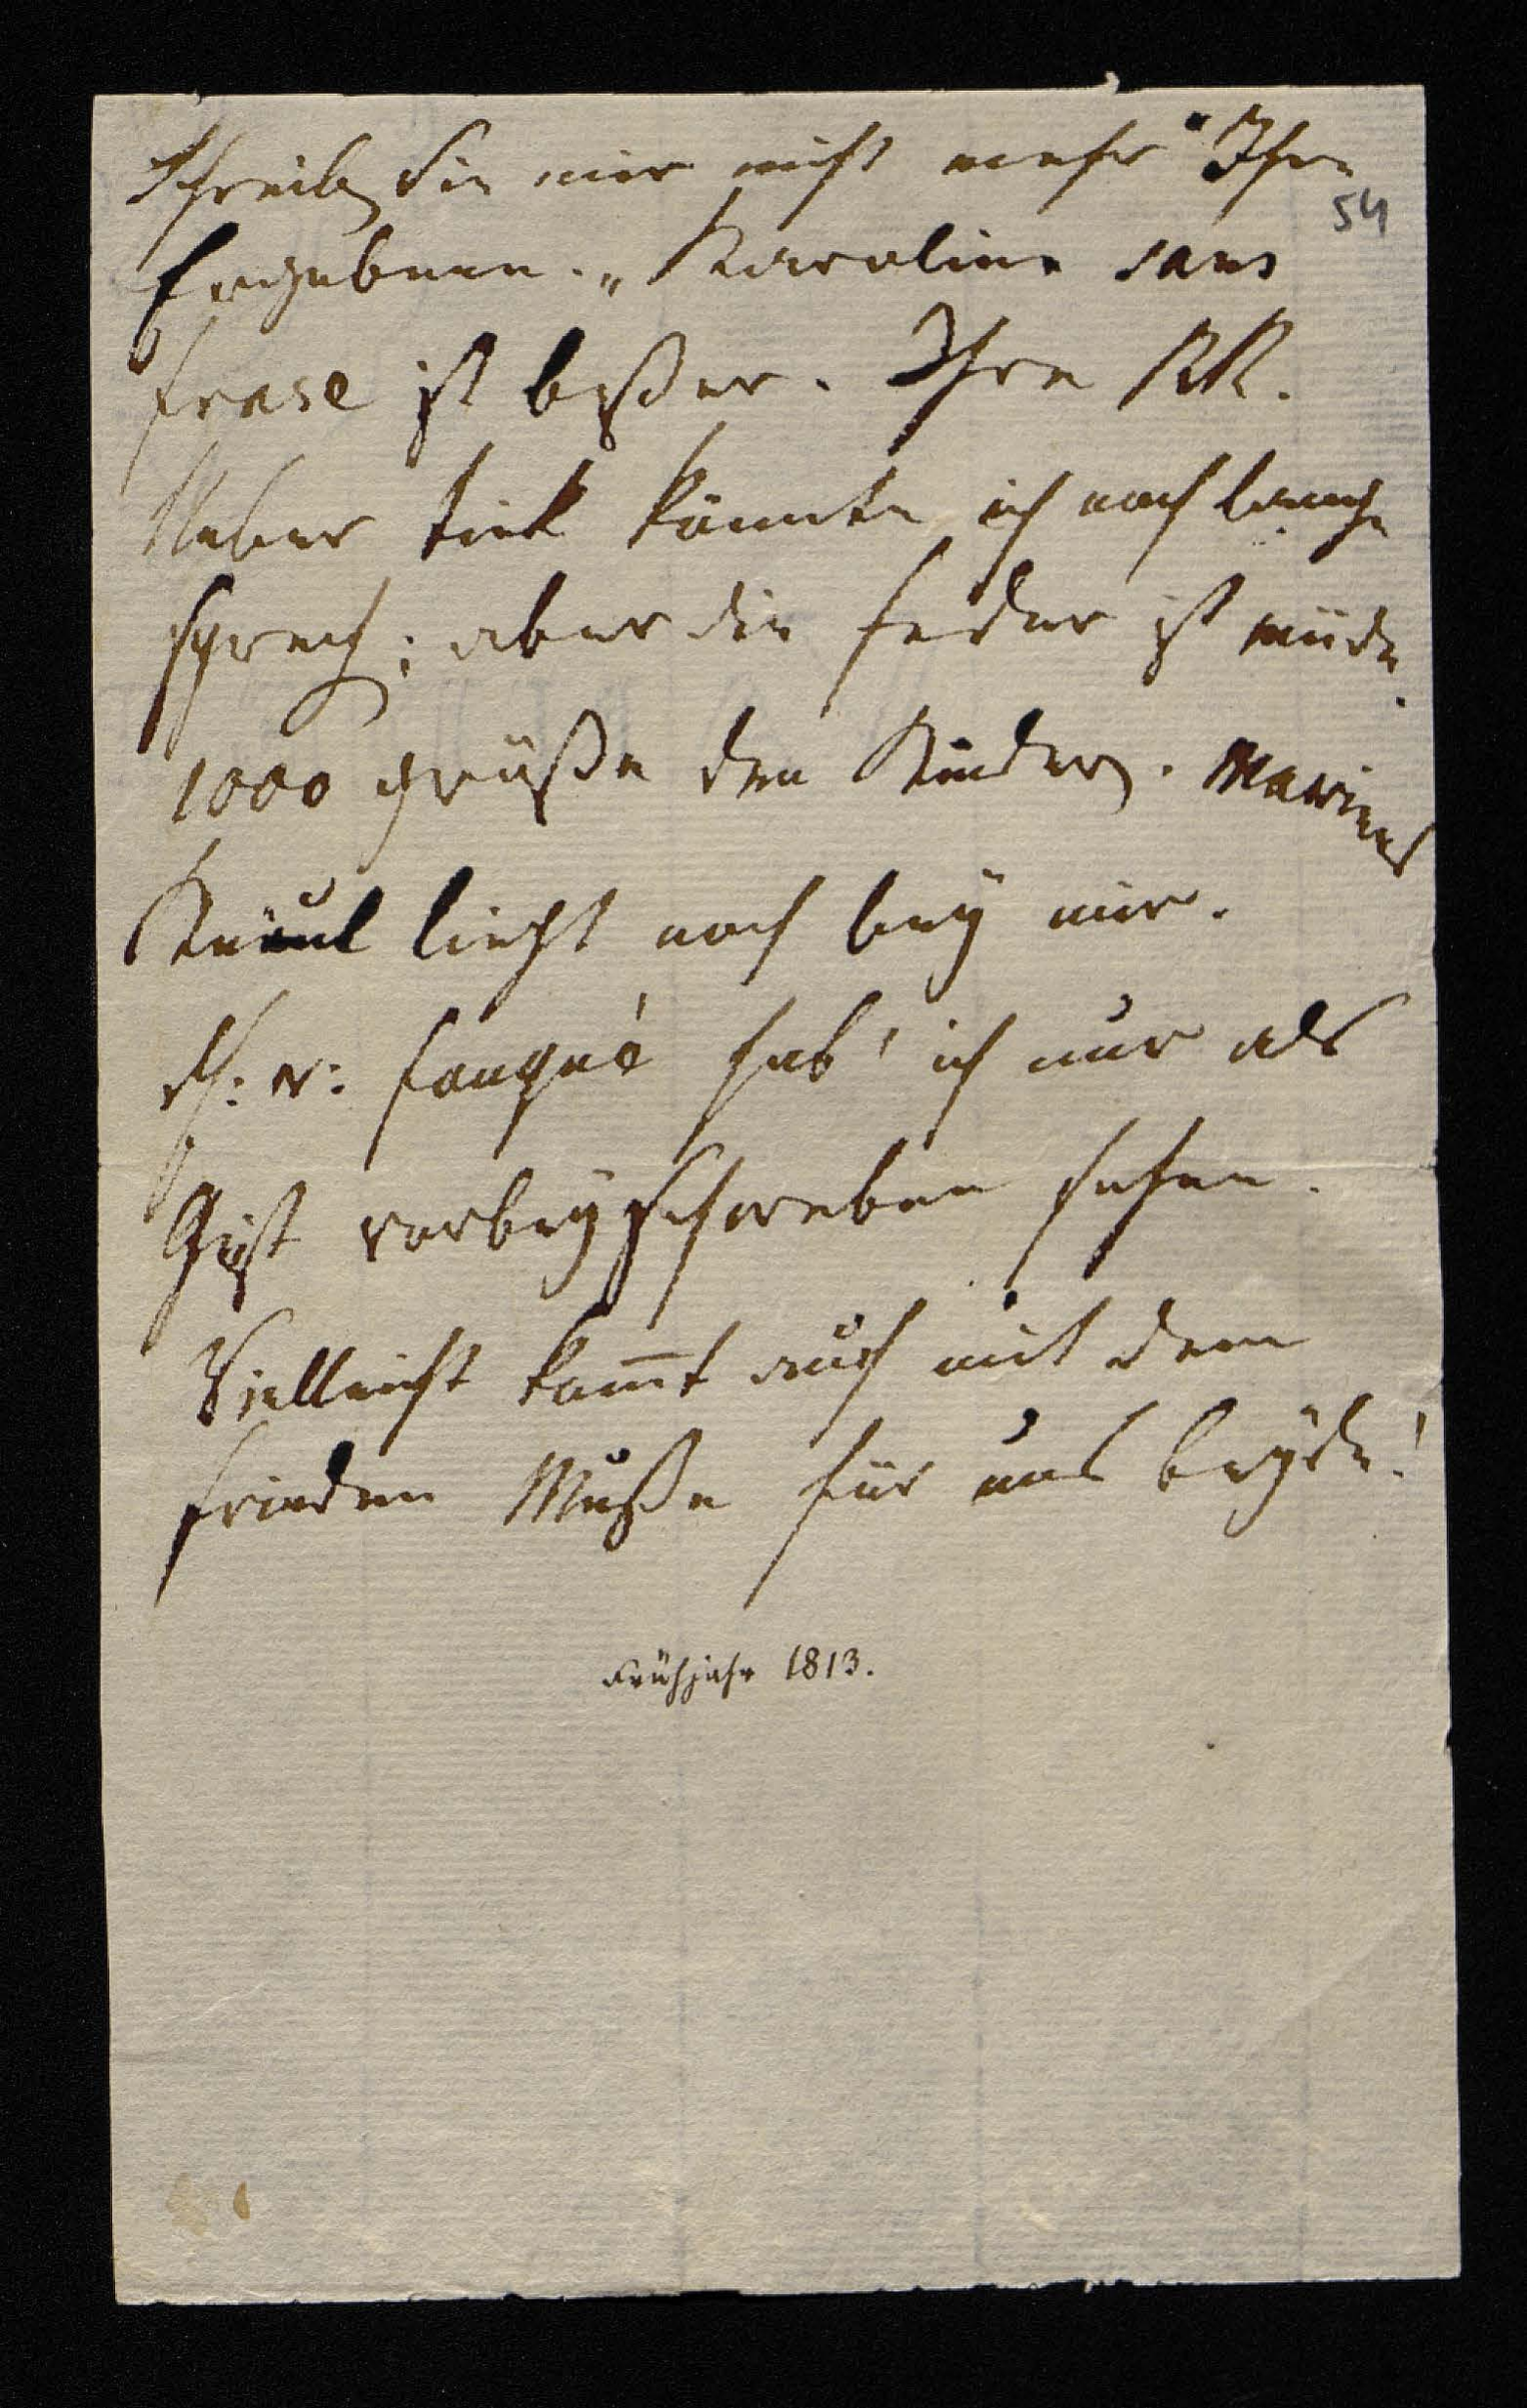 Schreiben Sie mir nicht mehr "Ihre
54
Ergebene." Karoline sans
frase ist beßer. Ihre RR.
Ueber Tiek könnte ich noch lange
sprechen; aber die Feder ist müde.
1000 grüße den Kindern. Mariens
Knäul liegt noch bey mir.
H: v: Fouqué hab' ich nur als
Geist vorbeyschweben sehen.
Vielleicht kom̅t auch mit dem
Frieden Muße für uns beyde!
Frühjahr 1813.